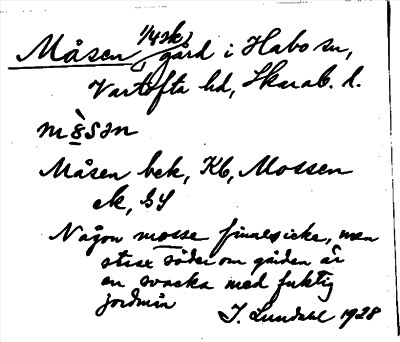 Måsen 1/4 sk, gård i Habo sn,
Vartofta hd, Skarab. l.
Måsen bek, Kb, Mossen
ek, GS
Någon mosse finnes icke, men
strax söder om gården är
en svacka med fuktig
jordmån
I. Lundahl 1928